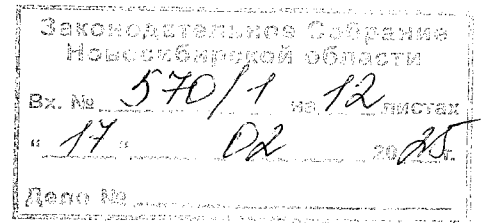 Законодательное Собрание
Новосибирской области
Вх. № 570/1 на 12 листах
" 17 " 02 2025 г.
Дело №